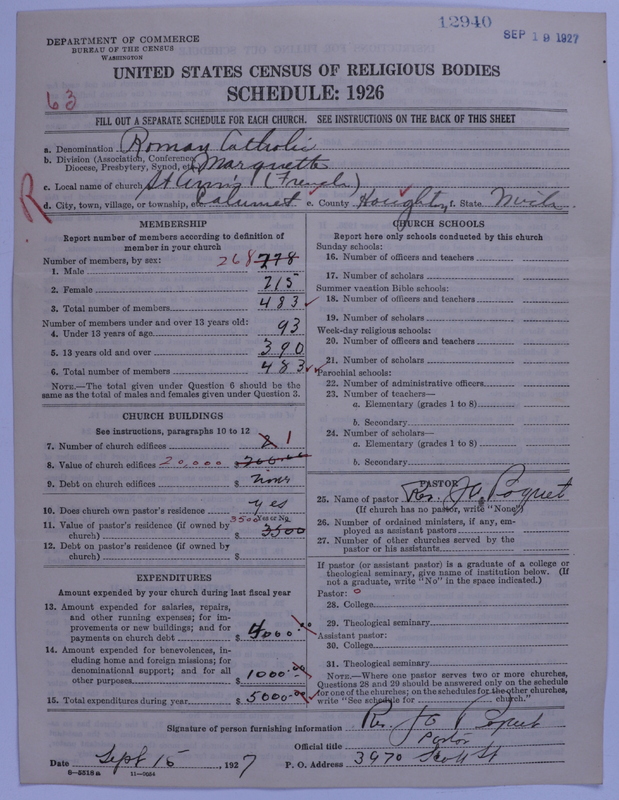 12940
SEP 19 1927
DEPARTMENT OF COMMERCE
BUREAU OF THE CENSUS
WASHINGTON
UNITED STATES CENSUS OF RELIGIOUS BODIES
SCHEDULE: 1926
63
FILL OUT A SEPARATE SCHEDULE FOR EACH CHURCH. SEE INSTRUCTIONS ON THE BACK OF THIS SHEET
a. Denomination Roman Catholic
b. Division (Association, Conference, Diocese, Presbytery, Synod, etc.) Marquette
c. Local name of church St Ann's (French)
d. City, town, village, or township, etc. Calumet e. County Houghton f. State Mich.
R
MEMBERSHIP
Report number of members according to definition of
member in your church
Number of members, by sex:
1. Male 268 778
2. Female 215
3. Total number of members 483
Number of members under and over 13 years old:
4. Under 13 years of age 93
5. 13 years old and over 390
6. Total number of members 483
NOTE.—The total given under Question 6 should be the
same as the total of males and females given under Question 3.
CHURCH BUILDINGS
See instructions, paragraphs 10 to 12
7. Number of church edifices 1
8. Value of church edifices 20,000 $
9. Debt on church edifices $ none
10. Does church own pastor's residence yes
Yes or No
11. Value of pastor's residence (if owned by
church) 3500 $ 3500
12. Debt on pastor's residence (if owned by
church) $
EXPENDITURES
Amount expended by your church during last fiscal year
13. Amount expended for salaries, repairs,
and other running expenses; for im-
provements or new buildings; and for
payments on church debt $ 4000.00
14. Amount expended for benevolences, in-
cluding home and foreign missions; for
denominational support; and for all
other purposes $ 1000.00
15. Total expenditures during year $ 5000.00
CHURCH SCHOOLS
Report here only schools conducted by this church
Sunday schools:
16. Number of officers and teachers
17. Number of scholars
Summer vacation Bible schools:
18. Number of officers and teachers
19. Number of scholars
Week-day religious schools:
20. Number of officers and teachers
21. Number of scholars
Parochial schools:
22. Number of administrative officers
23. Number of teachers—
a. Elementary (grades 1 to 8)
b. Secondary
24. Number of scholars—
a. Elementary (grades 1 to 8)
b. Secondary
PASTOR
25. Name of pastor Rev. J.
(If church has no pastor, write "None")
26. Number of ordained ministers, if any, em-
ployed as assistant pastors
27. Number of other churches served by the
pastor or his assistants
If pastor (or assistant pastor) is a graduate of a college or
theological seminary, give name of institution below. (If
not a graduate, write "No" in the space indicated.)
Pastor: 0
28. College
29. Theological seminary
Assistant pastor:
30. College
31. Theological seminary
NOTE.—Where one pastor serves two or more churches,
Questions 28 and 29 should be answered only on the schedule
for one of the churches; on the schedules for the other churches,
write "See schedule for church."
Signature of person furnishing information Rev. J.
Official title Pastor
Date Sept 15 1927 P. O. Address 3970 Scott St
8-5518a 11-9554